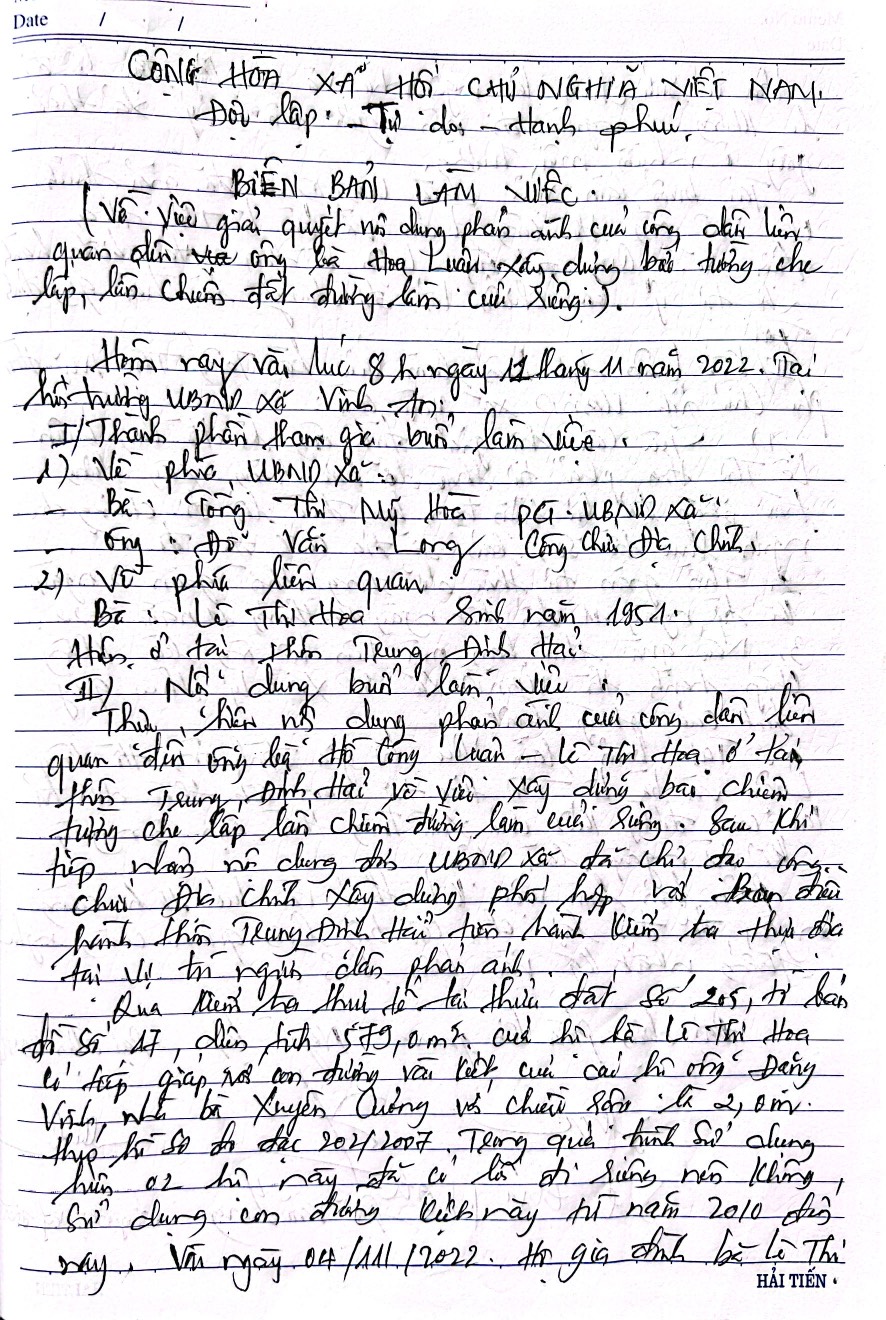 Date / /
CỘNG HÒA XÃ HỘI CHỦ NGHĨA VIỆT NAM.
Độc lập - Tự do - Hạnh phúc.
BIÊN BẢN LÀM VIỆC.
(Về việc giải quyết nội dung phản ánh của công dân liên
quan đến ông bà Hoa Luân xây dựng bao tường che
lấp, lấn chiếm đất đường làm của riêng).
Hôm nay vào lúc 8h ngày 11 tháng 11 năm 2022. Tại
hội trường UBND xã Vĩnh An.
I/ Thành phần tham gia buổi làm việc.
1) Về phía UBND xã:
- Bà: Tống Thị Mỹ Hoà PCT. UBND xã.
- Ông: Đỗ Văn Long Công chức Địa chính.
2) Về phía liên quan
Bà: Lê Thị Hoa Sinh năm 1951.
Hiện ở tại thôn Trung Định Hải
II) Nội dung buổi làm việc.
Thực hiện nội dung phản ánh của công dân liên
quan đến ông bà Hồ Công Luân - Lê Thị Hoa ở tại
thôn Trung Định Hải về việc xây dựng bao chiếm
tường che lấp lấn chiếm đường làm của riêng. Sau khi
tiếp nhận nội dung đơn UBND xã đã chỉ đạo công
chức Địa chính xây dựng phối hợp với Ban điều
hành thôn Trung Định Hải tiến hành kiểm tra thực địa
tại vị trí người dân phản ánh.
Qua kiểm tra thực tế tại thửa đất số 205, tờ bản
đồ số 17, diện tích 579,0 m². của hộ bà Lê Thị Hoa
có tiếp giáp với con đường vào của các hộ ông Đặng
Vinh, nhà bà Xuyên Cường với chiều rộng là 2,0m.
theo hồ sơ đo đạc 202/2007. Trong quá trình sử dụng
hiện 02 hộ này đã có lối đi riêng nên không
sử dụng con đường kiệt này từ năm 2010 đến
nay. Vào ngày 04/11/2022. Hộ gia đình bà Lê Thị
HẢI TIẾN